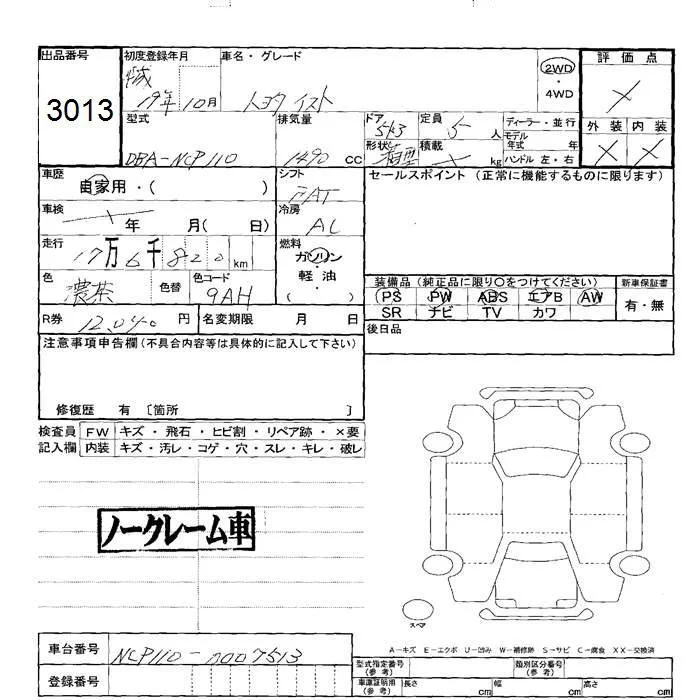 出品番号
3013
初度登録年月
平成
19年 10月
車名・グレード
トヨタ イスト
2WD
・
4WD
評価点
外装 内装
型式
DBA-NCP110
排気量
1490 cc
ドア
5ドア
形状
箱型
定員
5 人
積載
kg
ディーラー・並行
モデル
年式 年
ハンドル 左・右
車歴
自家用・( )
シフト
FAT
セールスポイント (正常に機能するものに限ります)
車検
年 月( 日)
冷房
AC
走行
17万6千820km
燃料
ガソリン
軽・油
( )
色
濃茶
色替
色コード
9AH
装備品 (純正品に限り○をつけてください)
新車保証書
PS PW ABS エアB AW
有・無
SR ナビ TV カワ
R券 12,040 円
名変期限 月 日
後日品
注意事項申告欄 (不具合内容等は具体的に記入して下さい)
修復歴 有 [箇所 ]
検査員
FW キズ・飛石・ヒビ割・リペア跡・×要
記入欄
内装 キズ・汚レ・コゲ・穴・スレ・キレ・破レ
ノークレーム車
スペア
A-キズ E-エクボ U-凹み W-補修跡 S-サビ C-腐食 XX-交換済
車台番号
NCP110-0007513
登録番号
型式指定番号
(参考)
類別区分番号
(参考)
車庫証明用
(参考)
長さ cm 幅 cm 高さ cm